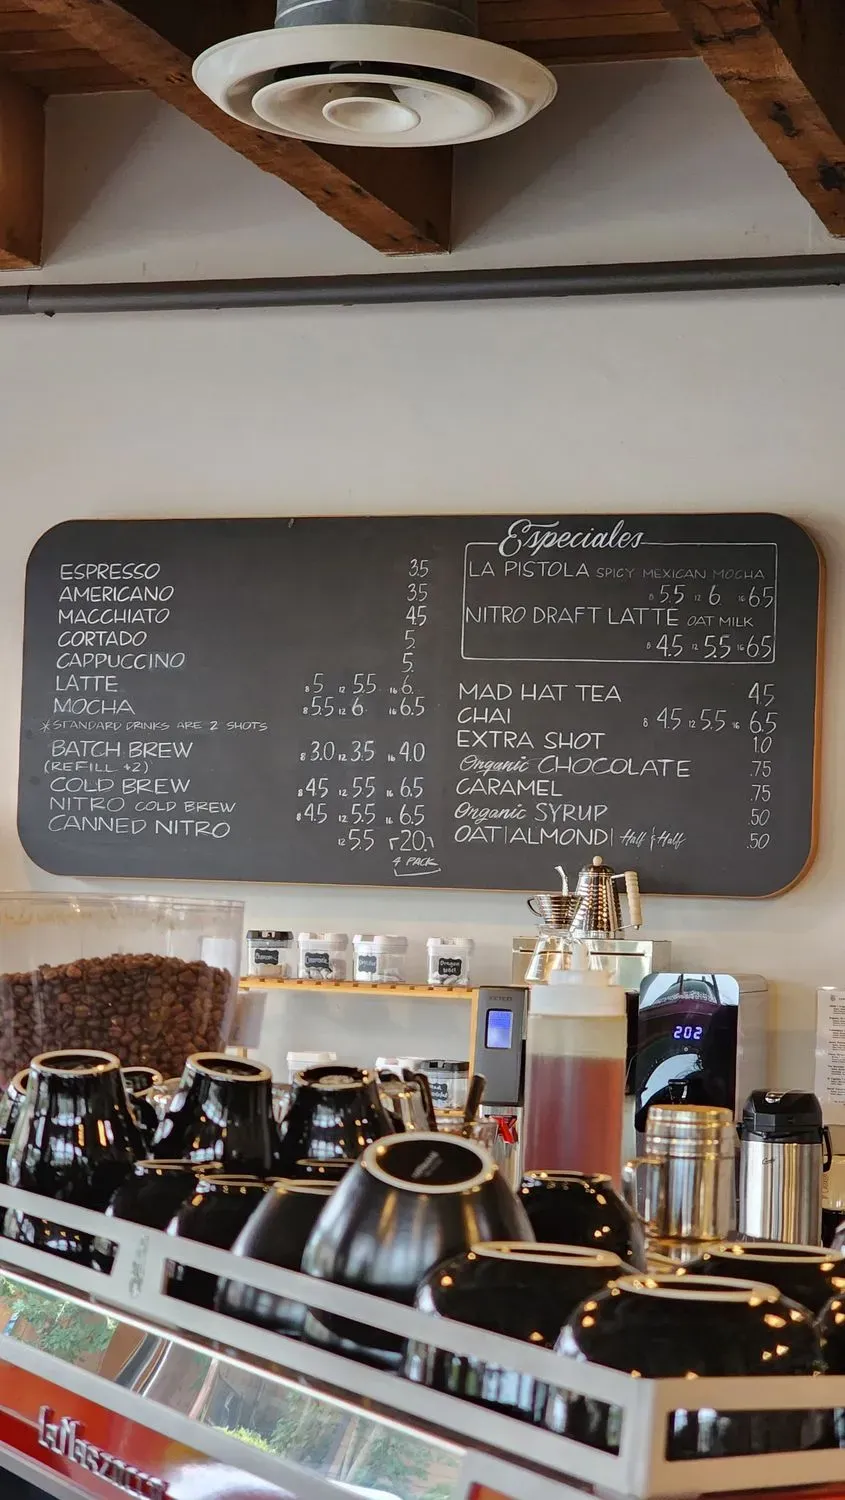 ESPRESSO 3.5
AMERICANO 3.5
MACCHIATO 4.5
CORTADO 5.
CAPPUCCINO 5.
LATTE 8 5. 12 5.5 16 6.
MOCHA 8 5.5 12 6. 16 6.5
*STANDARD DRINKS ARE 2 SHOTS
BATCH BREW 8 3.0 12 3.5 16 4.0
(REFILL $2)
COLD BREW 8 4.5 12 5.5 16 6.5
NITRO COLD BREW 8 4.5 12 5.5 16 6.5
CANNED NITRO 12 5.5 20.
4 PACK
Especiales
LA PISTOLA SPICY MEXICAN MOCHA
8 5.5 12 6. 16 6.5
NITRO DRAFT LATTE OAT MILK
8 4.5 12 5.5 16 6.5
MAD HAT TEA 4.5
CHAI 8 4.5 12 5.5 16 6.5
EXTRA SHOT 1.0
Organic CHOCOLATE .75
CARAMEL .75
Organic SYRUP .50
OAT|ALMOND| Half & Half .50
202
la Marzocco